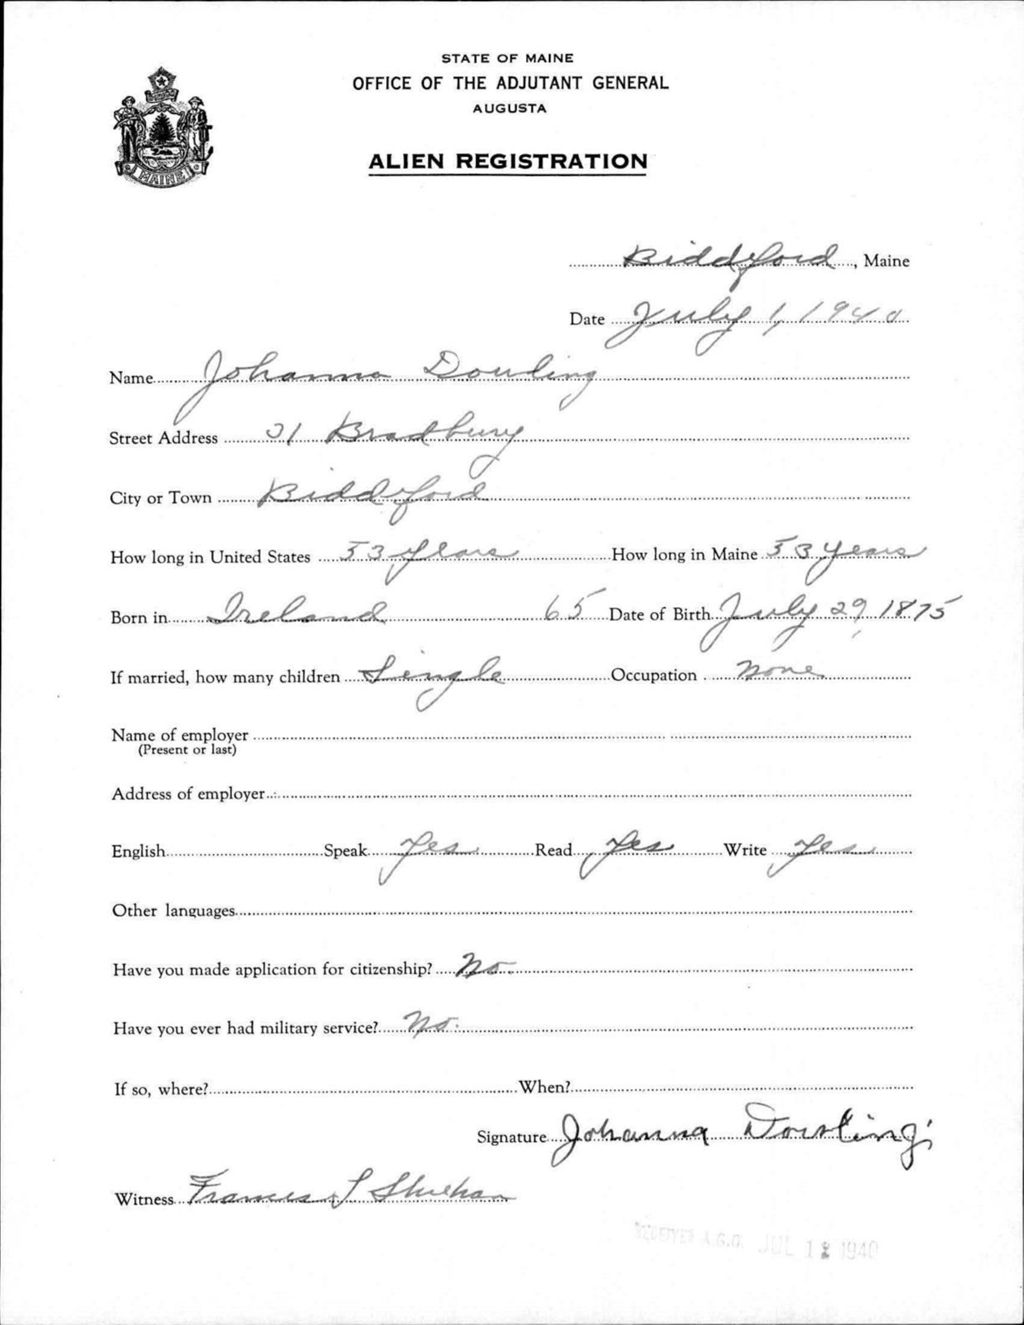 STATE OF MAINE
OFFICE OF THE ADJUTANT GENERAL
AUGUSTA
ALIEN REGISTRATION
MAINE
Biddeford, Maine
Date July 1, 1940
Name Johanna Dowling
Street Address 31 Bradbury
City or Town Biddeford
How long in United States 53 years How long in Maine 53 years
Born in Ireland 65 Date of Birth July 29, 1875
If married, how many children Single Occupation None
Name of employer
(Present or last)
Address of employer
English Speak Yes Read Yes Write Yes
Other languages
Have you made application for citizenship? No.
Have you ever had military service? No.
If so, where? When?
Signature Johanna Dowling
Witness Francis J Sheehan
RECEIVED A.G.O. JUL 12 1940